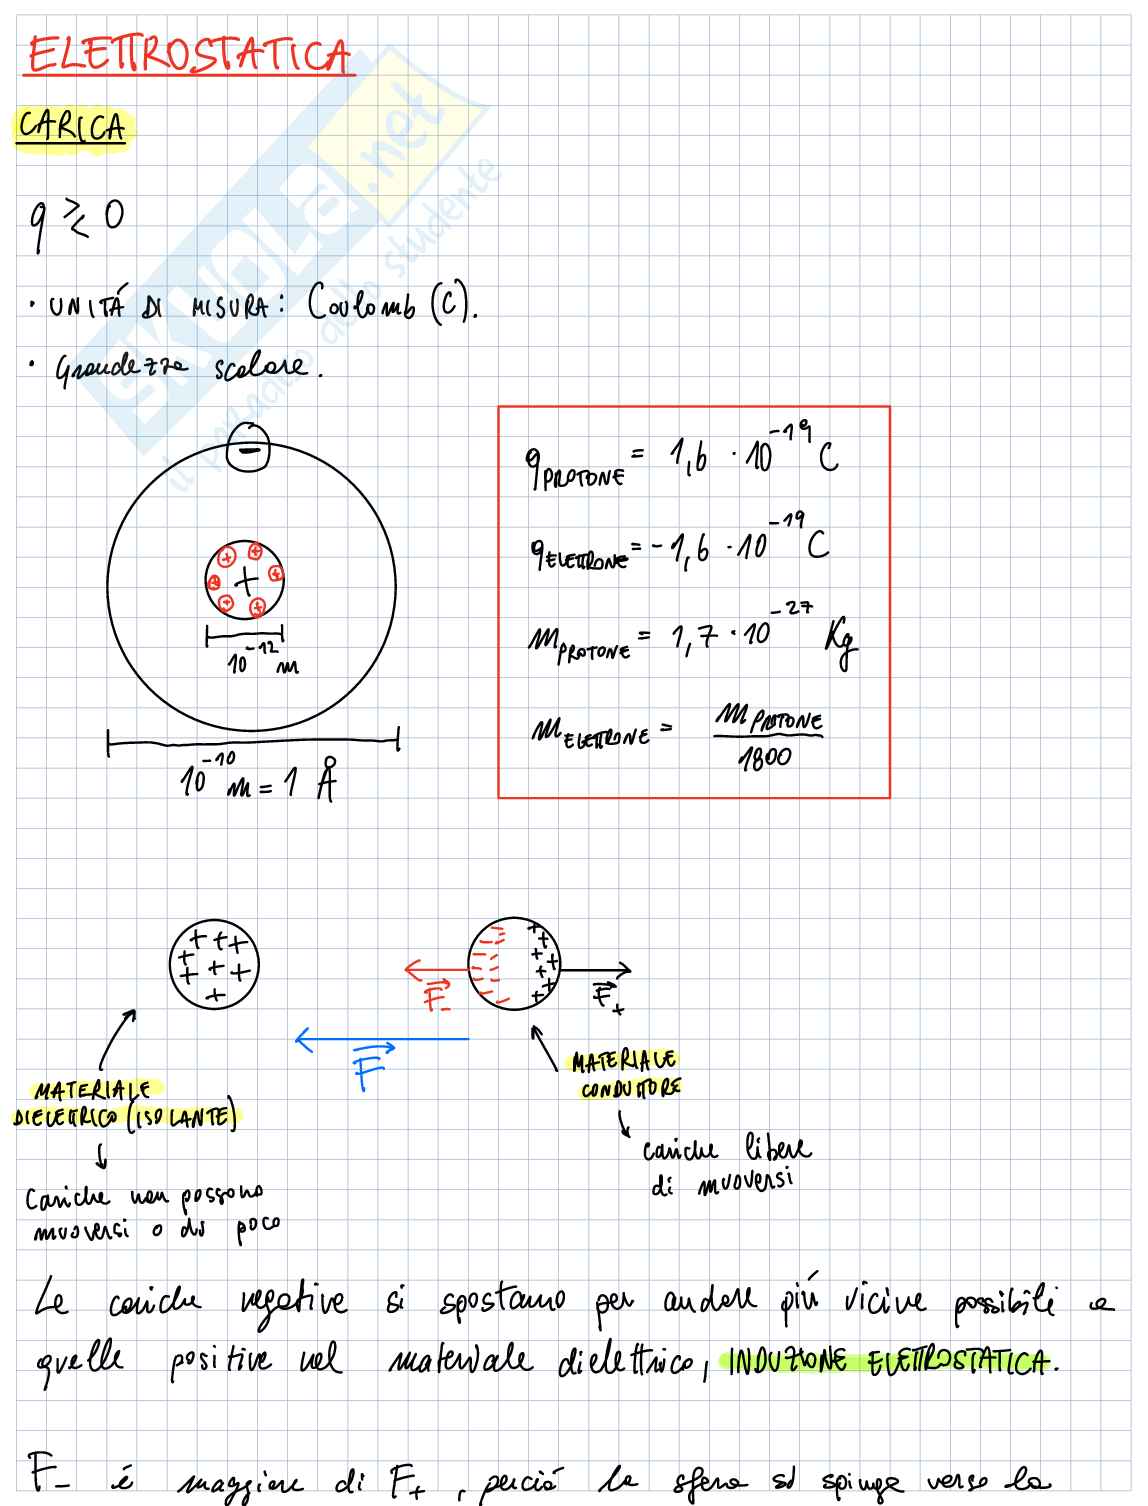 ELETTROSTATICA
CARICA
q ≷ 0
· UNITÁ DI MISURA: Coulomb (C).
· Grandezza scalare.
SKUOLA.net
il portale dello studente
−
+ + + + + + +
10⁻¹² m
10⁻¹⁰ m = 1 Å
q PROTONE = 1,6 · 10⁻¹⁹ C
q ELETTRONE = -1,6 · 10⁻¹⁹ C
m PROTONE = 1,7 · 10⁻²⁷ Kg
m ELETTRONE = m PROTONE / 1800
F₋
F₊
F
MATERIALE
DIELETTRICO (ISOLANTE)
Cariche non possono
muoversi o di poco
MATERIALE
CONDUTTORE
cariche libere
di muoversi
Le cariche negative si spostano per andare più vicine possibili a
quelle positive nel materiale dielettrico, INDUZIONE ELETTROSTATICA.
F₋ é maggiore di F₊, perció la sfera si spinge verso la